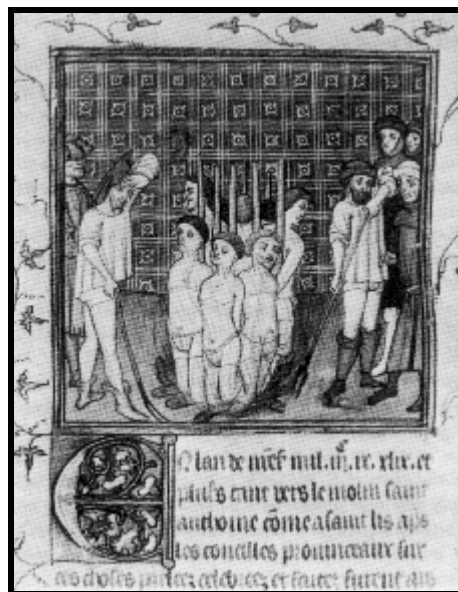 En lan de mil. et
plus tant vers le molin saint
anthoine cõme a saint lis aps
les concilles prouinceaux sur
ces choses celebrez et faitez furent